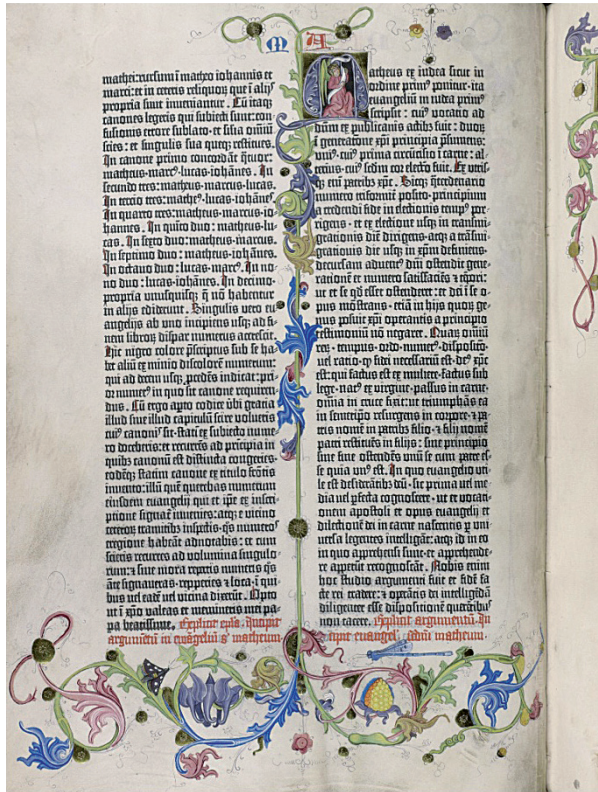 M A
mathei:rursum ī matheo iohannis et
marci:et in ceteris reliquoꝝ que ī alijs
propria sunt inueniantur. Cū itaqꝫ
canones legeris qui subiecti sunt:con-
fusionis errore sublato:et sīlia omniū
scies:et singulis sua queqꝫ restitues.
In canone primo concordāt quatuor
matheus·marcꝰ·lucas·iohānes. In
secundo tres:matheus·marcus·lucas.
In tercio tres:matheꝰ·lucas·iohānes.
In quarto tres:matheus·marcus·io-
hannes. In quīto duo:matheus·lu-
cas. In sexto duo:matheus·marcus.
In septimo duo:matheus·iohānes.
In octauo duo:lucas·marcꝰ. In no-
no duo:lucas·iohānes. In decimo:
propria unusquisqꝫ que nō habentur
in alijs ediderunt. Singulis vero eu-
angelijs ab uno incipiens usqꝫ ad fi-
nem librorꝫ dispar numerus accrescit.
Hic nigro colore pscriptus sub se ha-
bet aliū ex minio discolorē numerum:
qui ad decem usqꝫ pcedēs indicat:pri-
or numerꝰ in quo sit canone requiren-
dus. Cū ergo apto codice ūbi gratia
illud siue illud capitulū scire volueris
cuiꝰ canonis sit·statī ex subiecto nume-
ro doceberis:et recurrēs ad pricipia in
quibꝫ canonū est distincta congeries:
eodēqꝫ statim canone ex titulo frōtis
inuento:illū quē querebas numerum
eiusdem euangelij qui et ipse ex inscri-
ptione signatꝰ inuenies:atqꝫ e vicino
ceterorꝫ tramitibꝫ inspectis·quos numeros
e regione habeāt adnotabis: et cum
scieris recurres ad volumina singulo-
rum:et sine mora repertis numeris quos
ante signaueras·repperies et loca:ī qui-
bus vel eadē vel uicina dixerūt. Opto
ut ī xpo valeas et memineris mei pa-
pa beatissime. Explicit epistola. Incipit
argumētū in euāgeliū scdm matheum.
Matheus ex iudea sicut in
ordine primꝰ ponitur·ita
euangeliū in iudea primꝰ
scripsit: cuiꝰ vocatio ad
dūm ex publicanis actibꝫ fuit: duorꝫ
ī generatione xpi principia psumens:
uniꝰ·cuiꝰ prima circūcisio ī carne:al-
terius·cuiꝰ scdm cor electio fuit. Ex utris-
qꝫ enī patribꝫ xpc. Sicqꝫ quaterdenario
numero triformit̄ posito·principium
a credendi fide in electionis tempꝰ por-
rigens· et ex electione usqꝫ in transmi-
grationis diē dirigens·atqꝫ a trāsmi-
grationis die usqꝫ in xpm definiens·
decursam aduentꝰ dn̄i ostendit gene-
rationē: et numero satisfaciēs et tēpori:
ut et se quod esset ostenderet: et dei ī se o-
pus monstrans·etiā in hijs quorꝫ ge-
nus posuit xpi operantis a principio
testimoniū nō negaret. Quarꝫ omniū
rerꝫ·tempus·ordo·numerꝰ·dispositio·
vel ratio·quod fidei necessariū est·deꝰ xpc
est:qui factus est ex muliere·factus sub
lege·natꝰ ex virgine·passus in carne·
omnia in cruce fixit:ut triumphās ea
in semetipso resurgens in corpore·et pa-
tris nomē in patribꝫ filio·et filij nomē
patri restitues in filijs: sine principio
sine fine ostendēs unū se cum patre es-
se quia unꝰ est. In quo euangelio uti-
le est desiderātibꝫ deū·sic prima uel me-
dia uel pfecta cognoscere·ut et vocati-
onem apostoli et opus euangelij et
dilectionē dei in carne nascentis p uni-
uersa legentes intelligāt:atqꝫ id in eo
in quo apprehensi sunt·et apprehende-
re appetūt recognoscāt. Nobis enim
hoc studio argumenti fuit et fidē fa-
cte rei tradere: et opētis dei intelligēdā
diligenter esse dispositionē querētibꝰ
non tacere. Explicit argumentū. In
cipit euangeliū scdūm matheum.